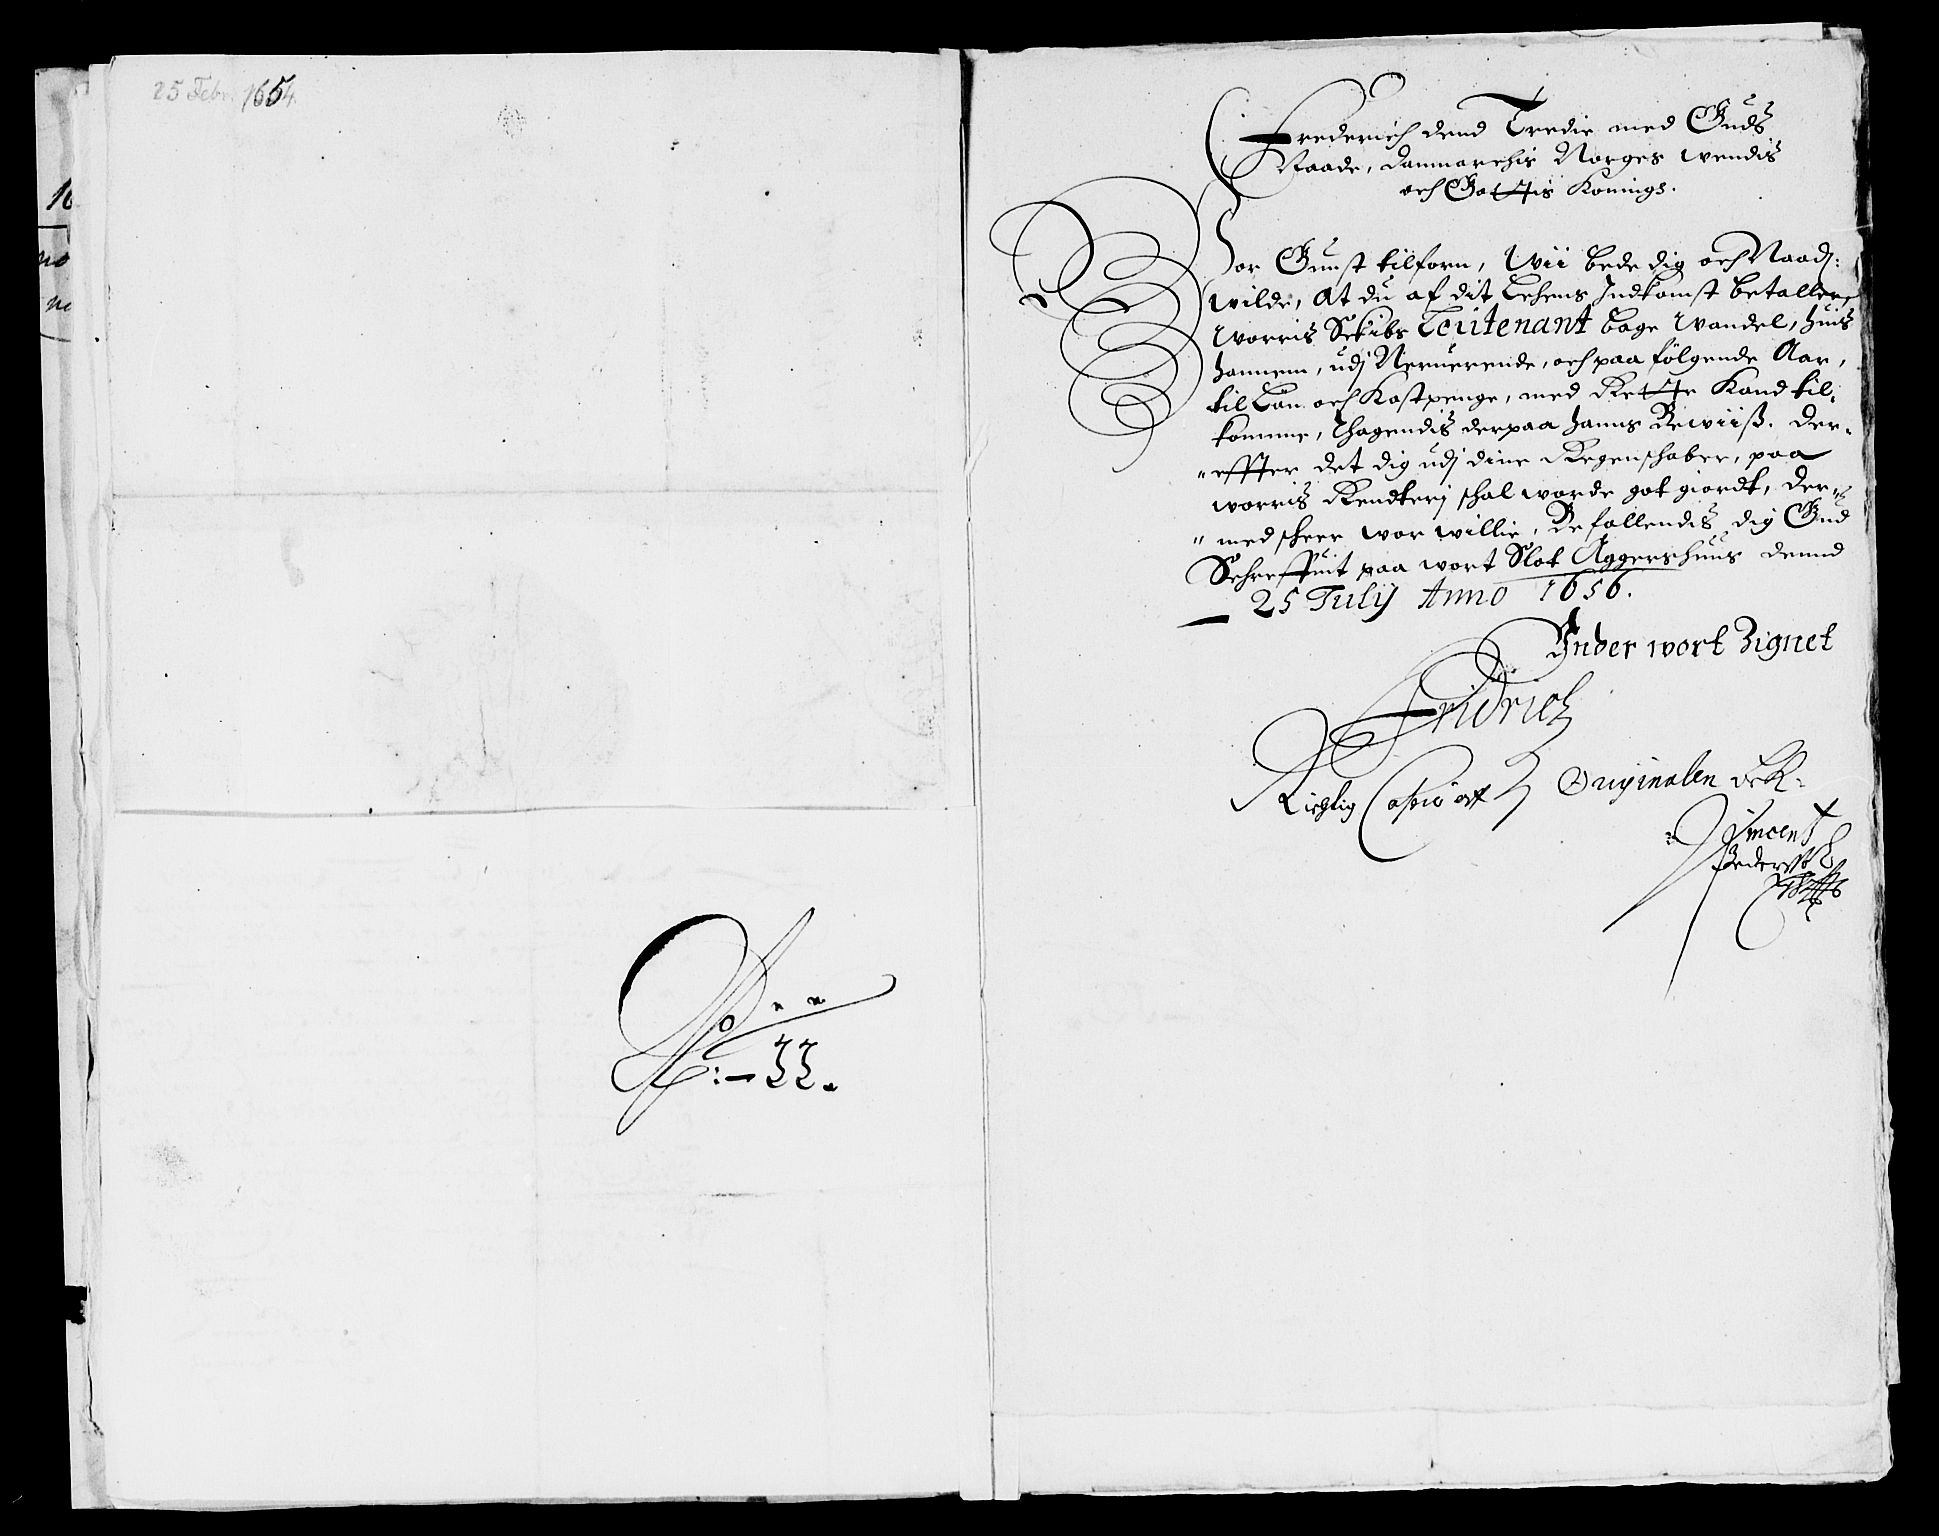 25 Febr. 1654.
No
33.
Frederich dend Tredie med Guds
Naade, Danmarchis Norges Wendis
och Gottis Konings.
Vor Gunst tilforn, Wii bede dig och Naad:
wilde, At du af dit Lehens Indkomst betaller,
Worris Schibs Leutenant Bage Wandel, huis
hannem, udj Neruerende, och paa fölgende Aar,
til Lön och Kostpenge, med Rette Kand til,
komme, Thagendis derpaa hanns Bewiiß. Der-
effter det dig udj dine Regenschaber, paa
worris Rendterj schal worde got giordt, Der-
med scheer wor willie, Befallendis dig Gud
Schreffuit paa wort Slot Aggershuus dennd
25 Julij Anno 1656.
Under wort Zignet
Fridrich
Richtig Copie aff Originalen Bek:
Vincent
Pederss